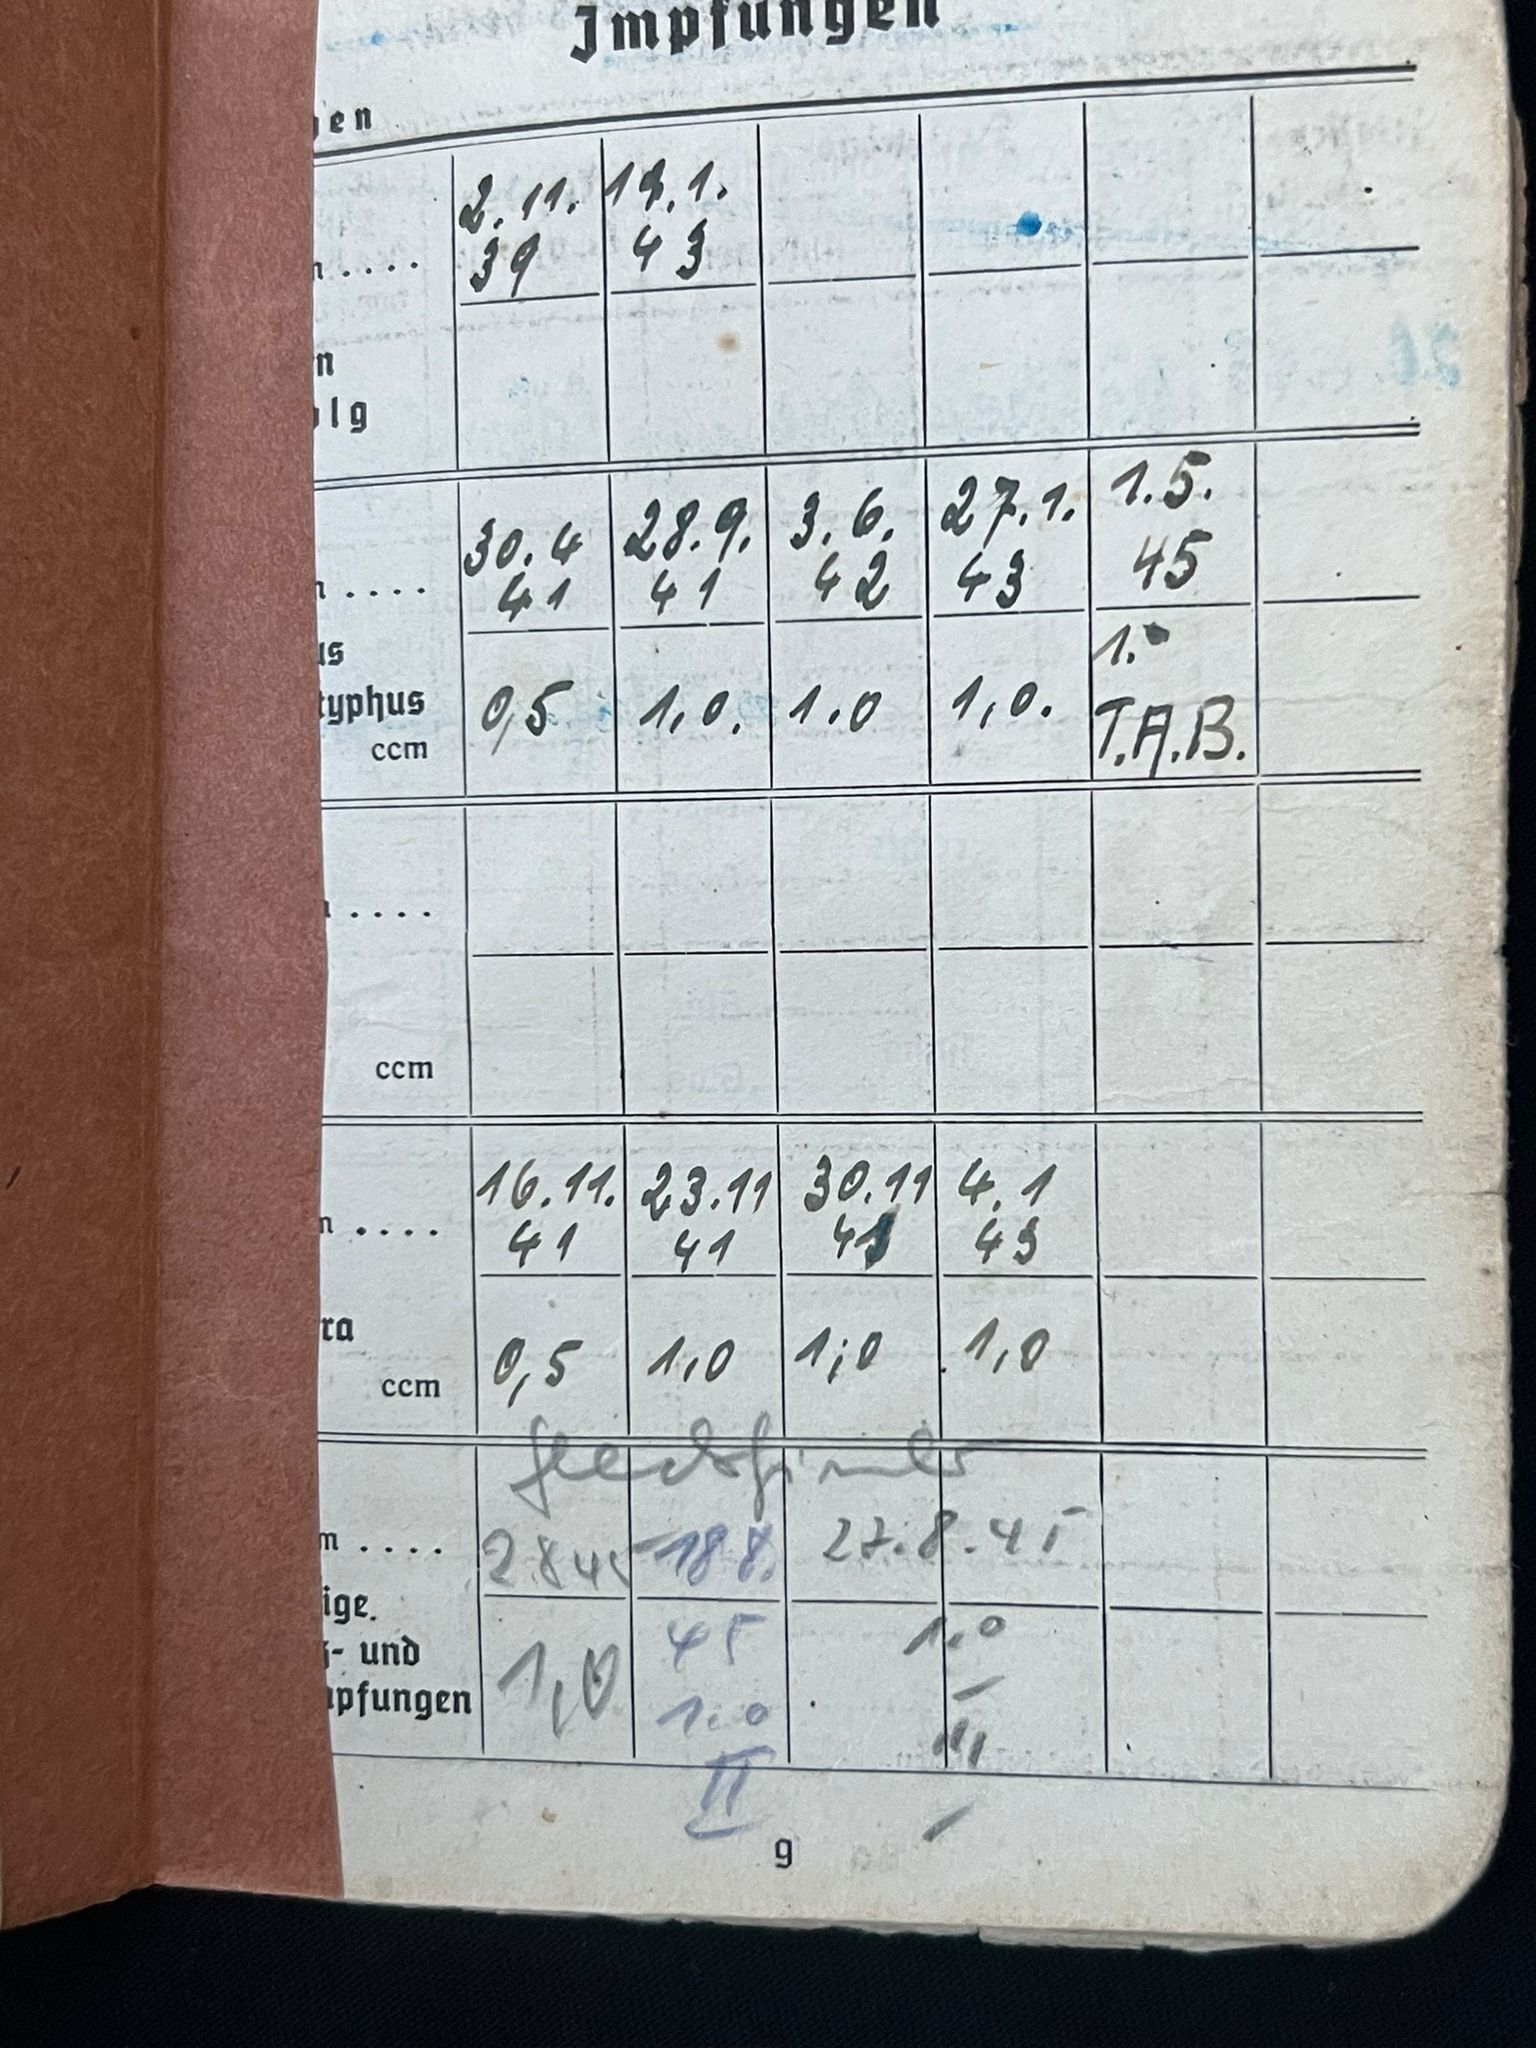 Impfungen
gen
2.11. 19.1.
39 43
n ....
n
olg
30.4 28.9. 3.6. 27.1. 1.5.
41 41 42 43 45
n ....
us 1.
typhus 0,5 1,0. 1.0 1,0. T.A.B.
ccm
....
ccm
16.11. 23.11 30.11 4.1
41 41 43
n ....
ra
0,5 1,0 1,0 1,0
ccm
2.8.45 18.8. 27.8.45
m ....
ige.
45 1.0
z- und
1,0
mpfungen
1.0 III
II
9